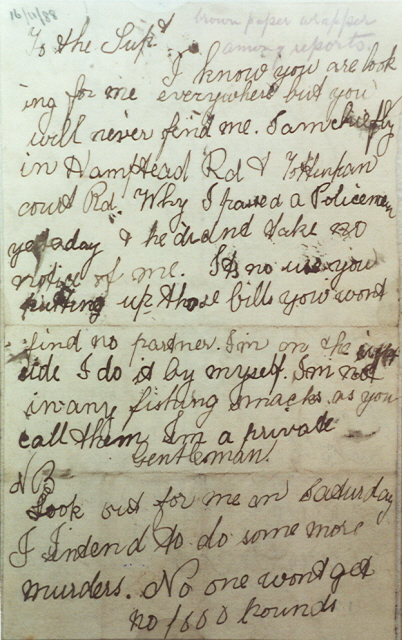 16/11/88
brown paper wrapper
among reports.
To the Supt
I know you are look
ing for me everywhere but you
will never find me. I am chiefly
in Hampstead Rd &
court Rd. Why I passed a Policeman
yesterday & he didnd take no
notice of me. Its no use you
putting up those bills you wont
find no partner. I'm on the
side I do it by myself. I'm not
in any fishing smacks as you
call them, Im a private
Gentleman.
NB
Look out for me on Saturday
I Intend to do some more
murders. No one wont get
no 1000 pounds